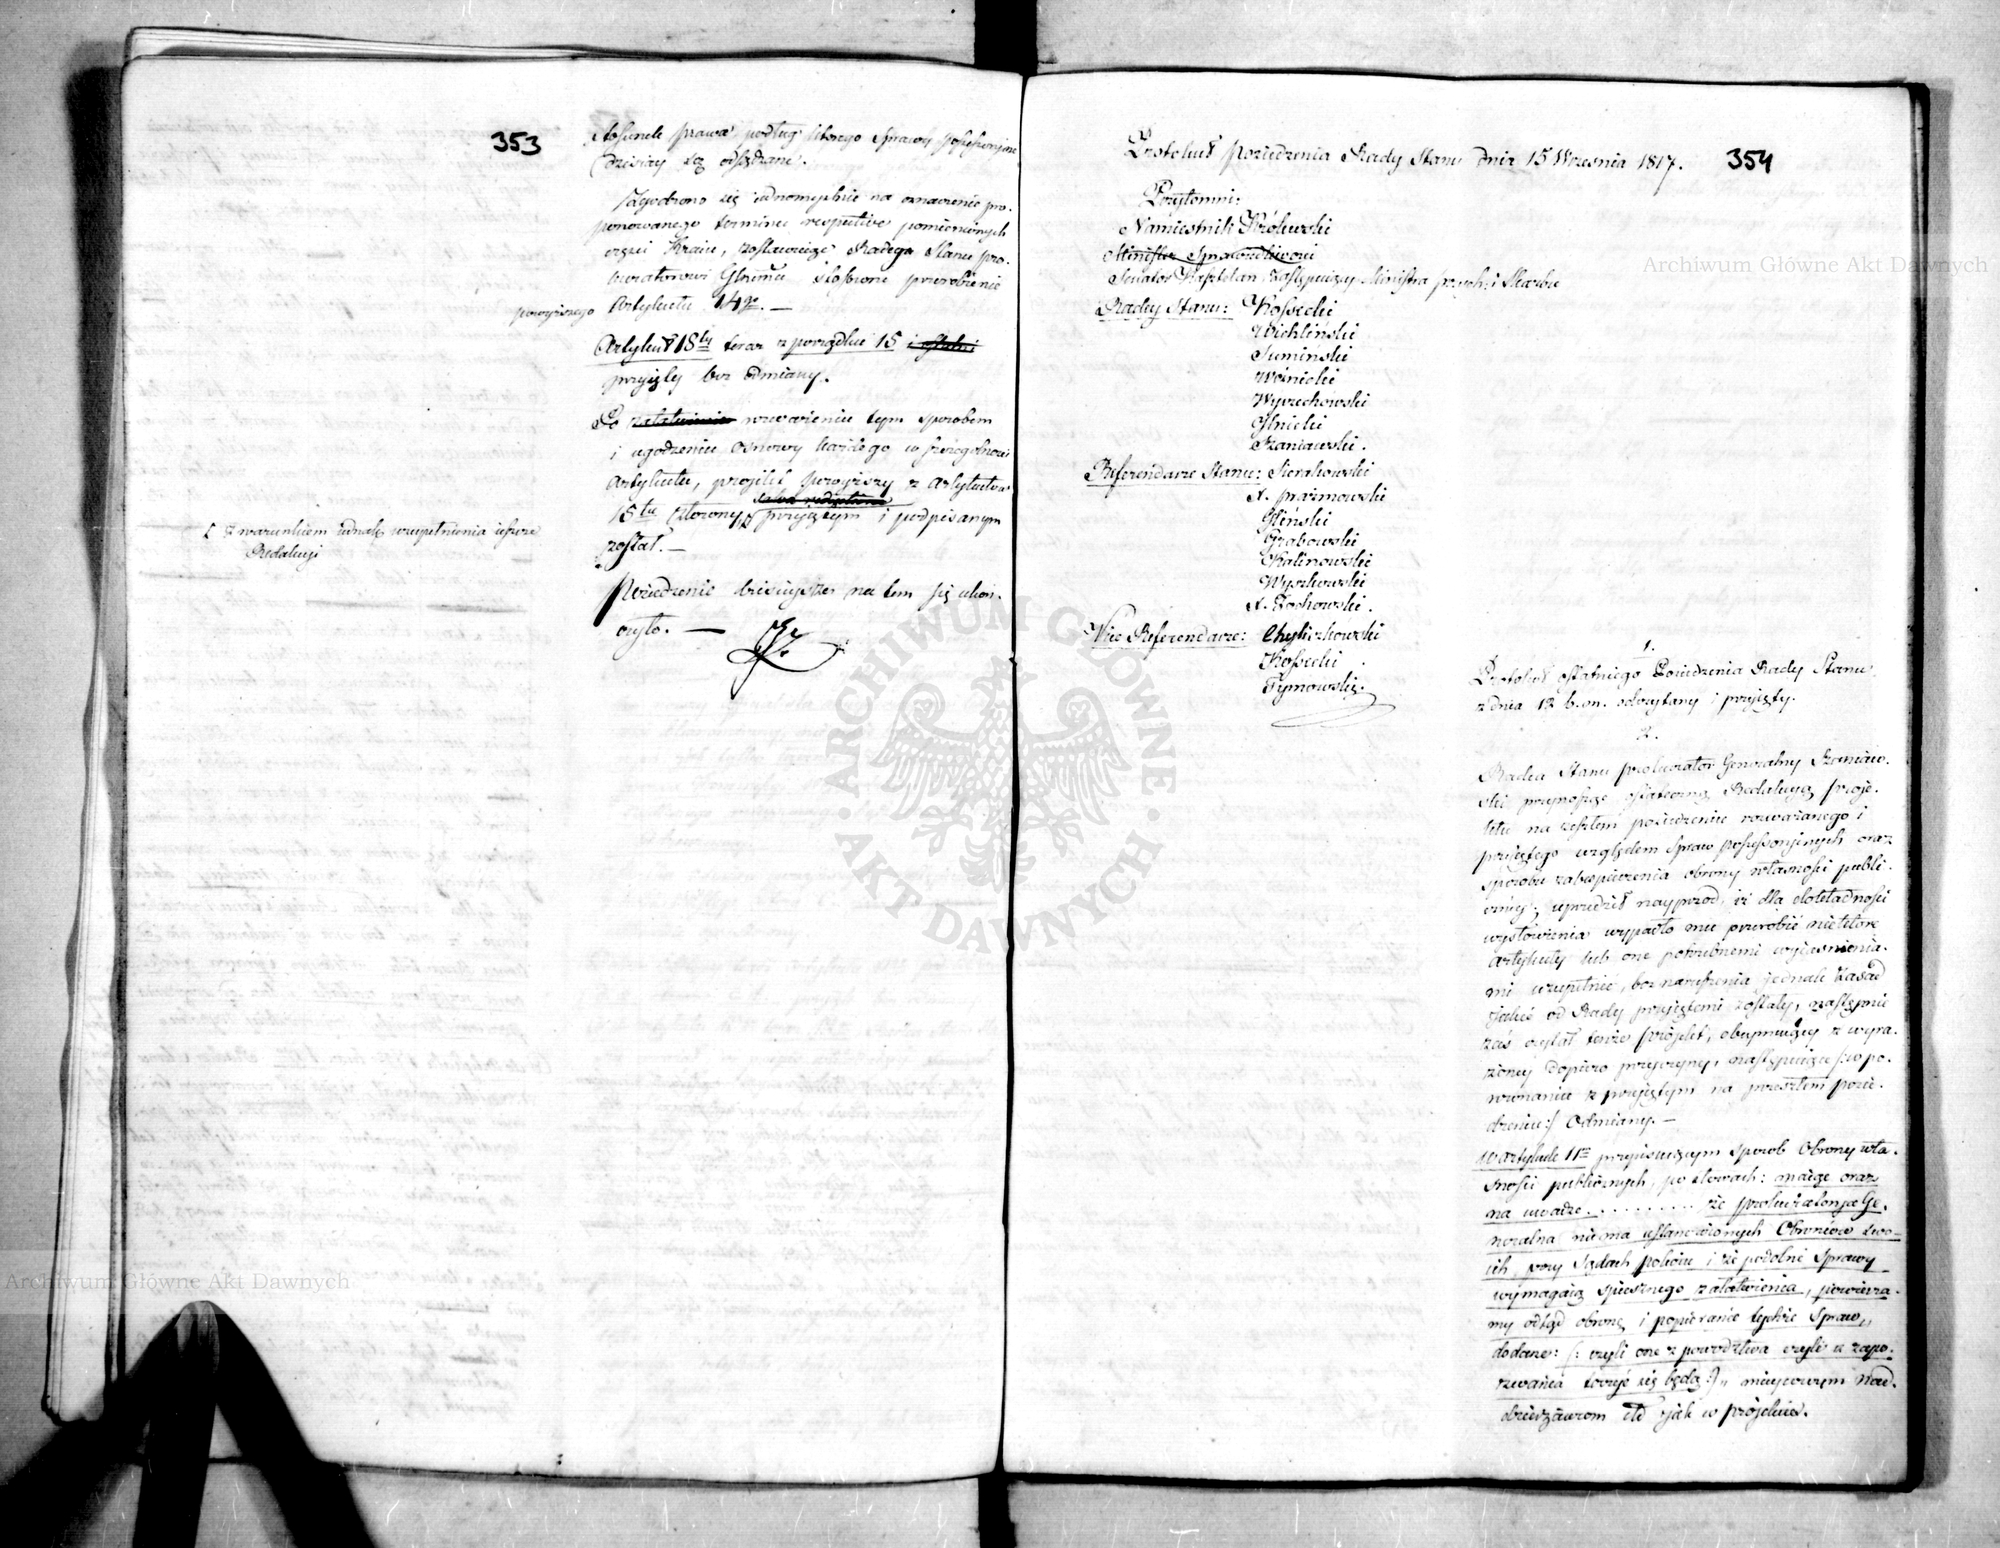 353
stosunek prawa, podług którego Sprawy possessyjne
dzisiay są osądzane.
Zgodzono się jednomyślnie na oznaczenie pro-
ponowanego terminu respective pomienionych
części Kraiu, zostawuiąc Radcy Stanu Pro-
kuratorowi Glnmu stosowne przerobienie
powyższego Artykułu 14go. —
Artykuł 18ty teraz z porządku 15
przyięty bez odmiany.
Po rozważeniu tym sposobem
i ugodzeniu osnowy każdego w szczególności
Artykułu, projekt powyższy z Artykułów
15tu złożony, przyiętym i podpisanym
został. —
[ z warunkiem iednak uzupełnienia ieszcze
Redakcyi
Posiedzenie dzisieysze na tem się ukoń-
czyło. —
354
Protokuł posiedzenia Rady Stanu dnia 15 Września 1817.
Przytomni:
Namiestnik Królewski
Minister Sprawiedliwości
Senator Kasztelan zastępuiący Ministra przych: i Skarbu
Radcy Stanu: Kossecki
Wichliński
Sumiński
Woźnicki
Wyczechowski
Glnicki
Szaniawski.
Referendarze Stanu: Sierakowski
X. Prażmowski
Gliński
Grabowski
Kalinowski
Wyszkowski
X. Żochowski.
Vice Referendarze: Chyliczkowski
Kossecki
Tymowski.
1.
Protokuł ostatniego Posiedzenia Rady Stanu
z dnia 12 b. m. odczytany i przyięty.
2.
Radca Stanu Prokurator Generalny Szaniaw-
ski przynosząc ostateczną Redakcyą proje-
ktu na zeszłem posiedzeniu rozważanego i
przyiętego względem Spraw possessoryinych oraz
sposobu zabespieczenia obrony własności publi-
czney; uprzedził nayprzod, iż dla dokładności
wysłowienia wypadło mu przerobić niektóre
Artykuły lub one potrzebnemi wyiaśnienia-
mi uzupełnić, bez naruszenia jednak zasad
jakie od Rady przyiętemi zostały, następnie
zaś czytał tenże projekt, obeymuiący z wyra-
żoney dopiero przyczyny, następuiące /: w po-
równaniu z przyiętym na przeszłem posie-
dzeniu:/ Odmiany. —
W Artykule 11m przepisuiącym sposób Obrony wła-
sności publicznych, po słowach: maiąc oraz
na uwadze.......... że Prokuratorya Ge-
neralna nie ma ustanowionych Obrońców swo-
ich przy Sądach pokoiu i że podobne Sprawy
wymagaią spiesznego załatwienia, powierza-
my odtąd obronę i popieranie tychże Spraw,,
dodane: /: czyli one z powództwa czyli z zapo-
zwania toczyć się będą:/,, mieyscowym Nad-
dzierżawcom etc jak w projekcie.
Archiwum Główne Akt Dawnych
Archiwum Główne Akt Dawnych
ARCHIWUM GŁÓWNE
AKT DAWNYCH